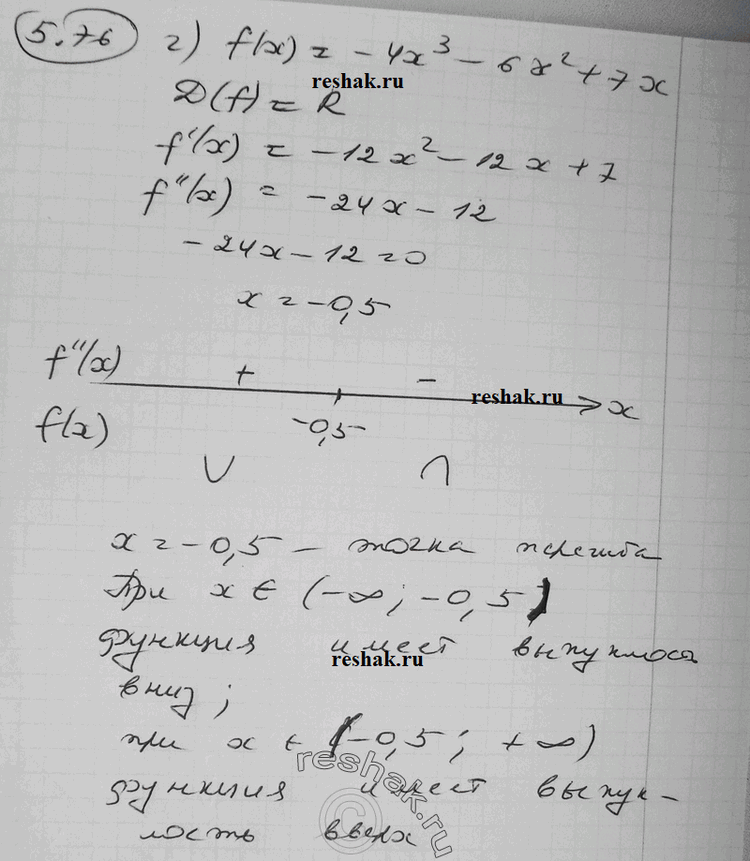 5.76 г) f(x) = -4x³ - 6x² + 7x
reshak.ru
D(f) = R
f'(x) = -12x² - 12x + 7
f''(x) = -24x - 12
-24x - 12 = 0
x = -0,5
f''(x) + - x
reshak.ru
f(x) -0,5
∪ ∩
x = -0,5 - точка перегиба
При x ∈ (-∞; -0,5)
функция имеет выпуклость
reshak.ru
вниз;
при x ∈ (-0,5; +∞)
функция имеет выпук-
лость вверх
reshak.ru
©